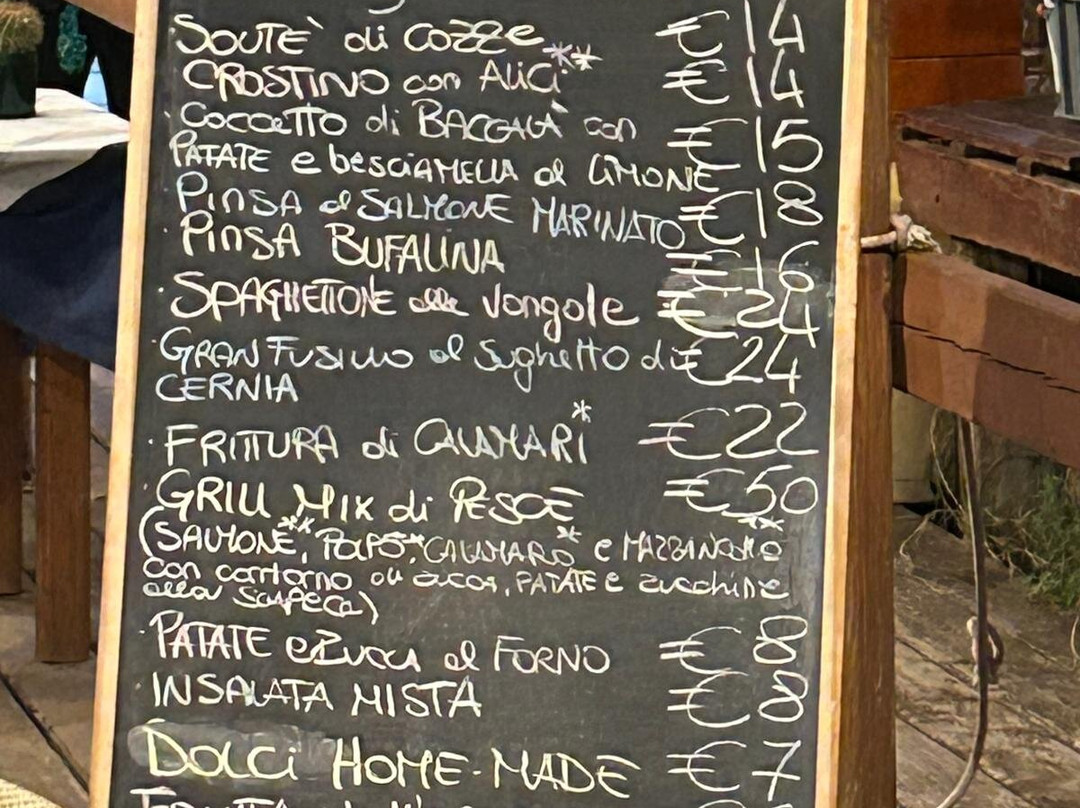 SOUTÈ di COZZE €14
CROSTINO con Alici** €14
Coccetto di BACCALÀ con €15
PATATE e besciAMELLA al LIMONE
PinSA al SALMONE MARINATO €18
PinSA BUFALINA €16
SPAGHETTONE alle Vongole €24
GRAN FUSILLO al Sughetto di €24
CERNIA
FRITTURA di CALAMARI* €22
GRILL MIX di PESCE €50
(SALMONE**, POLPO**, CALAMARO* e MAZZANCOLLE**
con contorno di zucca, PATATE e zucchine
alla SCAPECE)
PATATE e Zucca al FORNO €8
INSALATA MISTA €8
DOLCi HOME-MADE €7